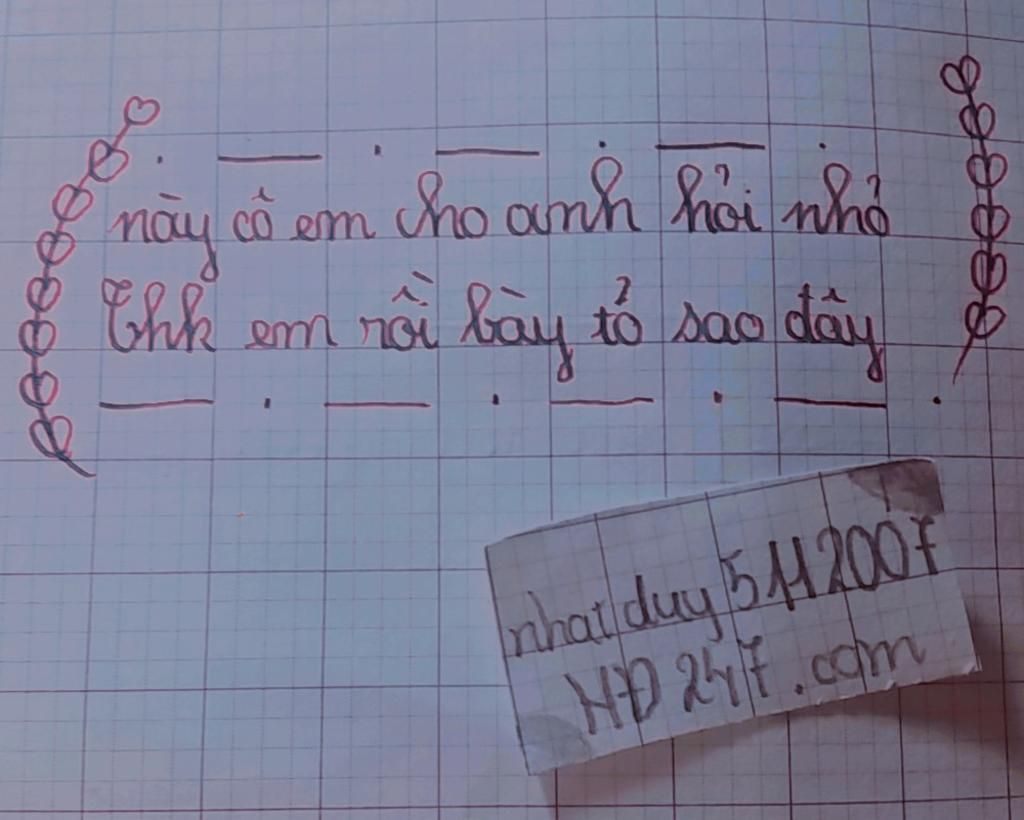 này cô em cho anh hỏi nhỏ
thk em rồi bày tỏ sao đây
nhatduy5112007
HĐ247.com